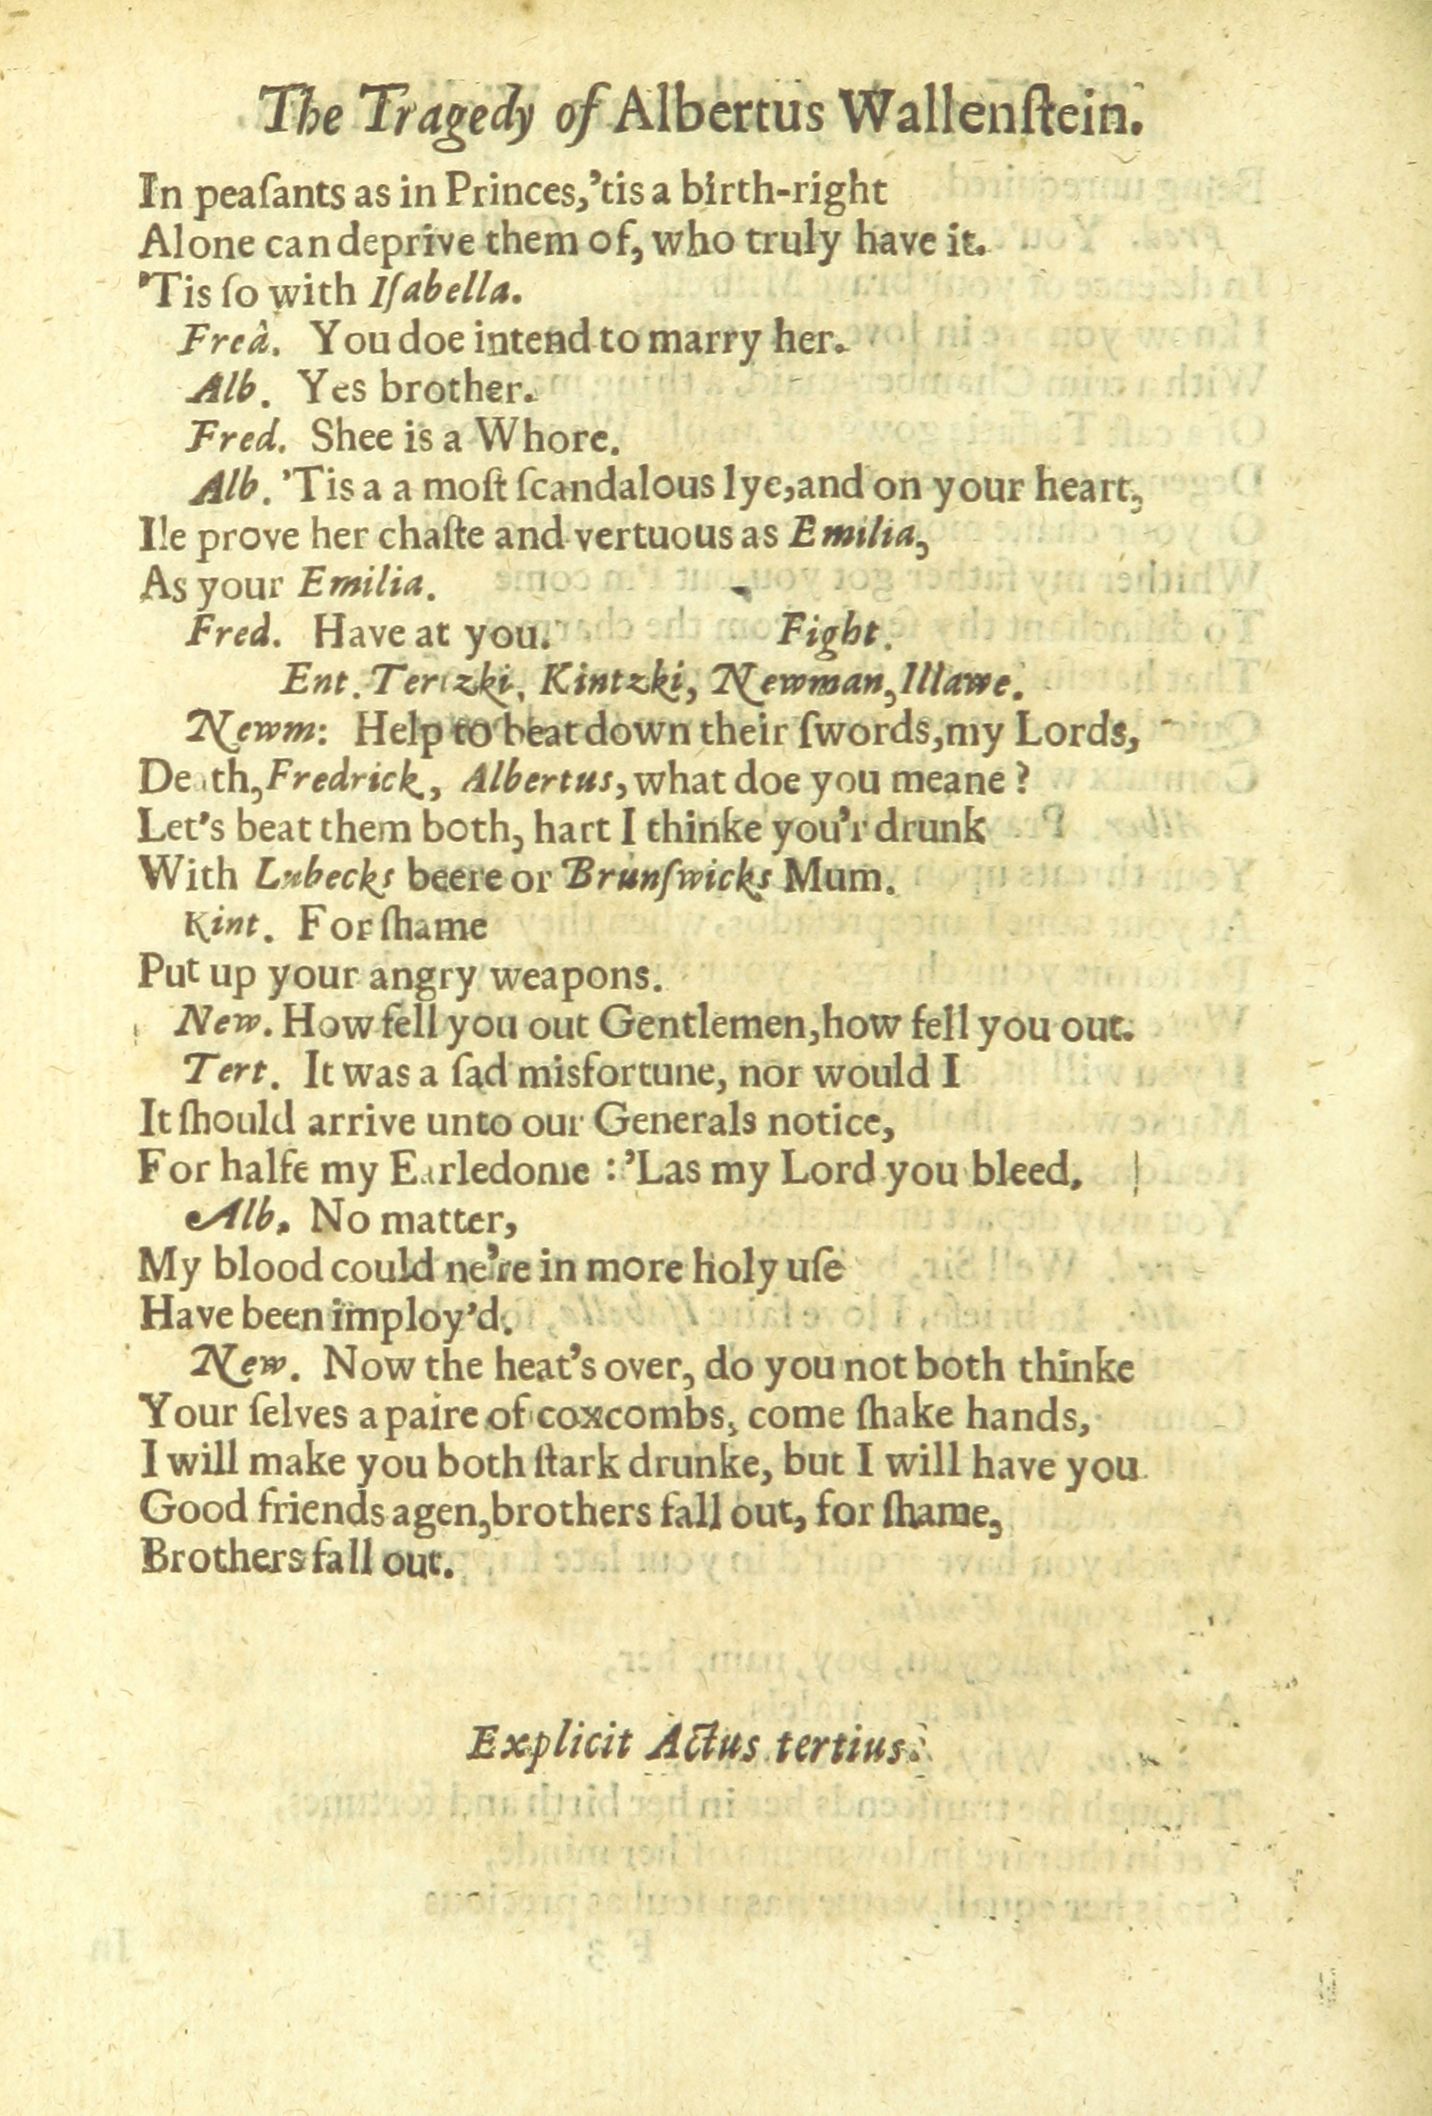 The Tragedy of Albertus Wallenſtein.
In peaſants as in Princes,'tis a birth-right
Alone can deprive them of, who truly have it.
'Tis ſo with Iſabella.
Fred. You doe intend to marry her.
Alb. Yes brother.
Fred. Shee is a Whore.
Alb. 'Tis a a moſt ſcandalous lye,and on your heart,
Ile prove her chaſte and vertuous as Emilia,
As your Emilia.
Fred. Have at you. Fight.
Ent. Tertzki, Kintzki, Newman,Illawe.
Newm: Help to beat down their ſwords,my Lords,
Death,Fredrick, Albertus,what doe you meane?
Let's beat them both, hart I thinke you'r drunk
With Lubecks beere or Brunſwicks Mum.
Kint. For ſhame
Put up your angry weapons.
New. How fell you out Gentlemen,how fell you out.
Tert. It was a ſad misfortune, nor would I
It ſhould arrive unto our Generals notice,
For halfe my Earledome :'Las my Lord you bleed.
Alb. No matter,
My blood could ne're in more holy uſe
Have been imploy'd.
New. Now the heat's over, do you not both thinke
Your ſelves a paire of coxcombs, come ſhake hands,
I will make you both ſtark drunke, but I will have you
Good friends agen,brothers fall out, for ſhame,
Brothers fall out.
Explicit Actus tertius.